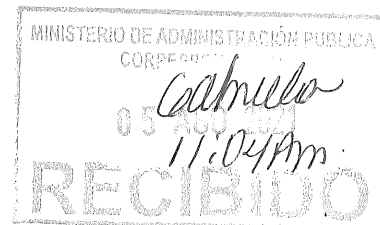 MINISTERIO DE ADMINISTRACIÓN PÚBLICA
05 AGO
11:04 Am.
RECIBIDO